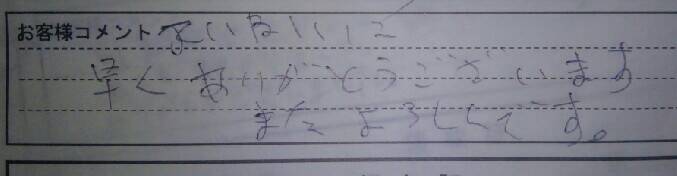 お客様コメント ていねいに
早く ありがとうございます
またよろしくです。